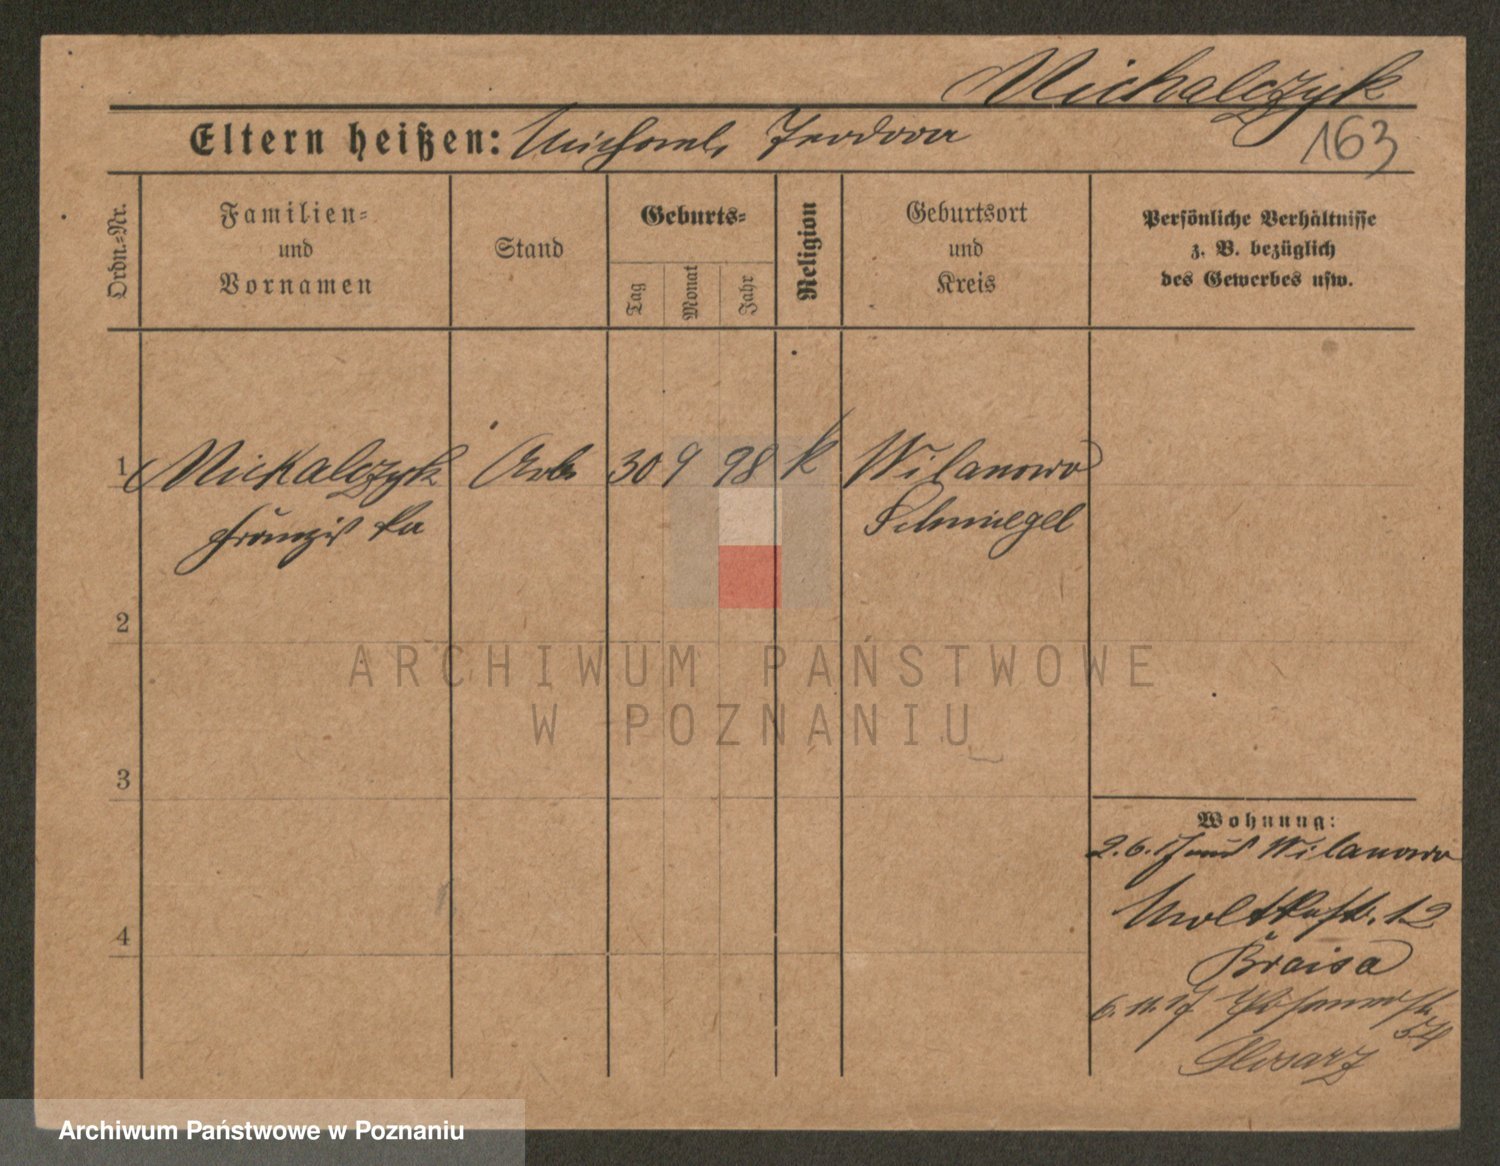 Michalczyk
163
Eltern heißen: Michael, Teodora
Ordn.=Nr.
Familien=
und
Vornamen
Stand
Geburts=
Tag
Monat
Jahr
Religion
Geburtsort
und
Kreis
Persönliche Verhältnisse
z. B. bezüglich
des Gewerbes usw.
1 Michalczyk Arb. 30 9 98 k Wilanowo
Franziska Schmiegel
2
ARCHIWUM PAŃSTWOWE
W POZNANIU
3
Wohnung:
2.6.17 aus Wilanowo
4
Moltkestr. 12
6.11.17
54
Archiwum Państwowe w Poznaniu